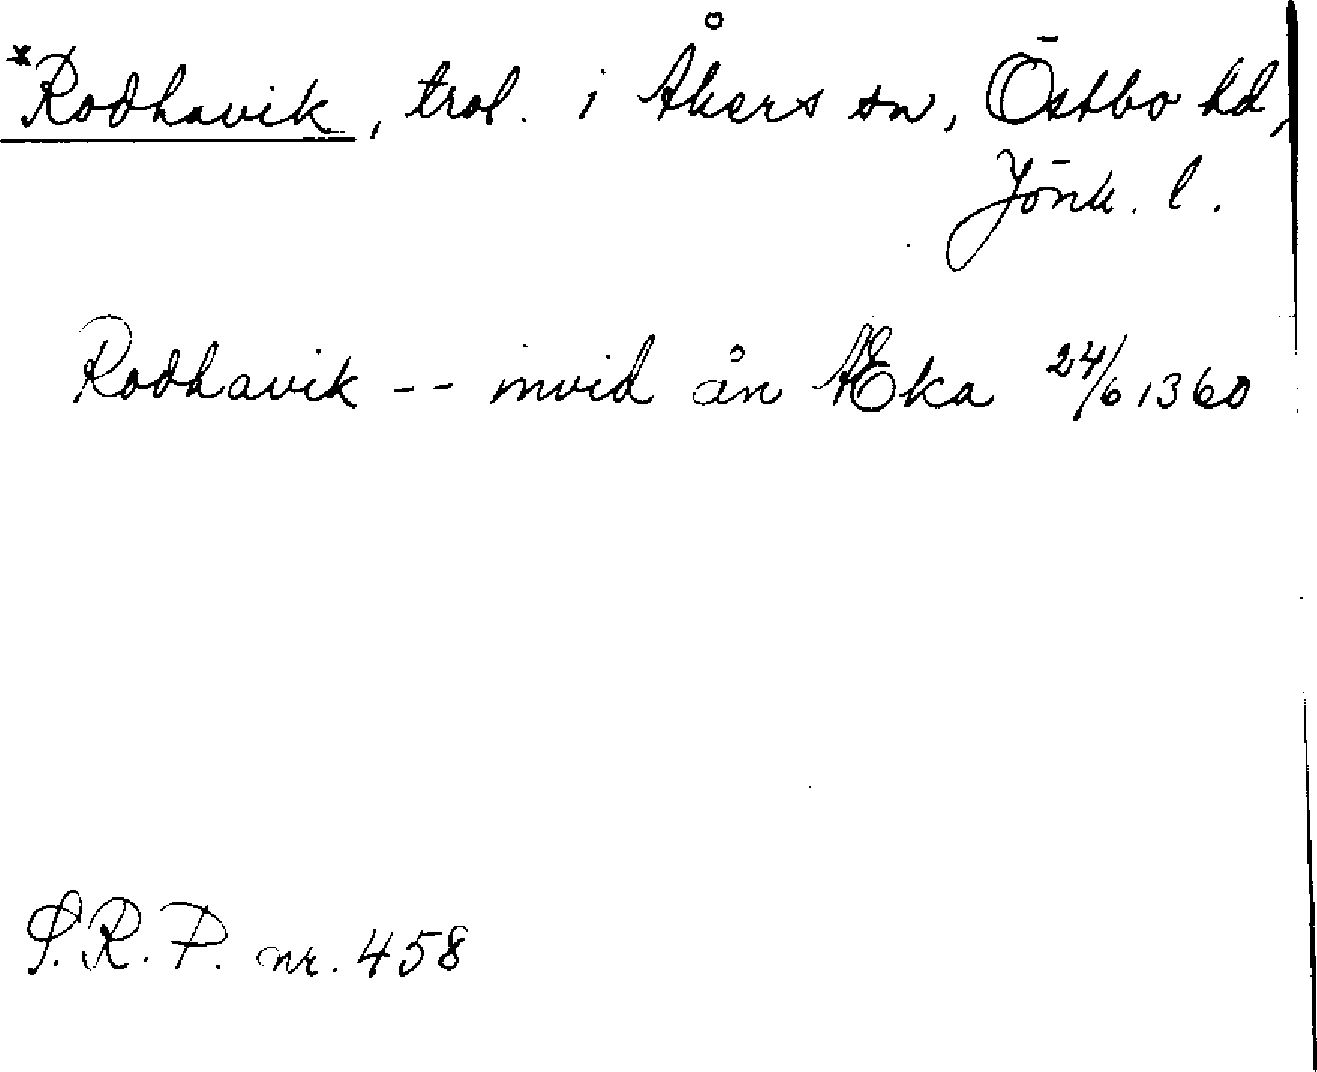 *Rodhavik, trol. i Åkers sn, Östbo hd,
Jönk. l.
Rodhavik -- invid ån Æka 24/6 1360
S.R.P. nr. 458